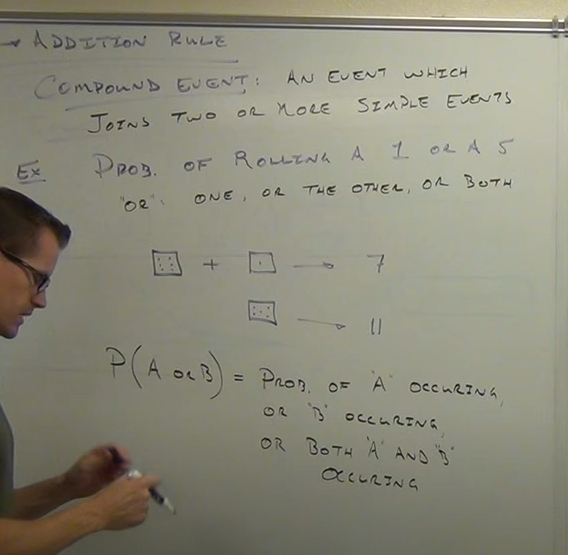 → ADDITION RULE
COMPOUND EVENT: AN EVENT WHICH
JOINS TWO OR MORE SIMPLE EVENTS
Ex PROB. OF ROLLING A 1 OR A 5
"OR": ONE, OR THE OTHER, OR BOTH
+ → 7
→ 11
P(A OR B) = PROB. OF "A" OCCURING,
OR "B" OCCURING,
OR BOTH "A" AND "B"
OCCURING